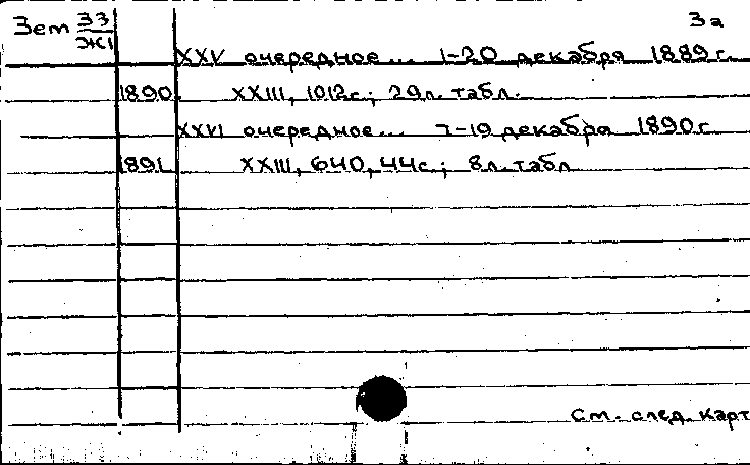 Зем 33 3а
Ж1
XXV очередное... 1-20 декабря 1889 г.
1890 XXIII, 1012 с.; 29 л. табл.
XXVI очередное... 7-19 декабря 1890 г.
1891 XXIII, 640, 44 с.; 8 л. табл.
См. след. карт